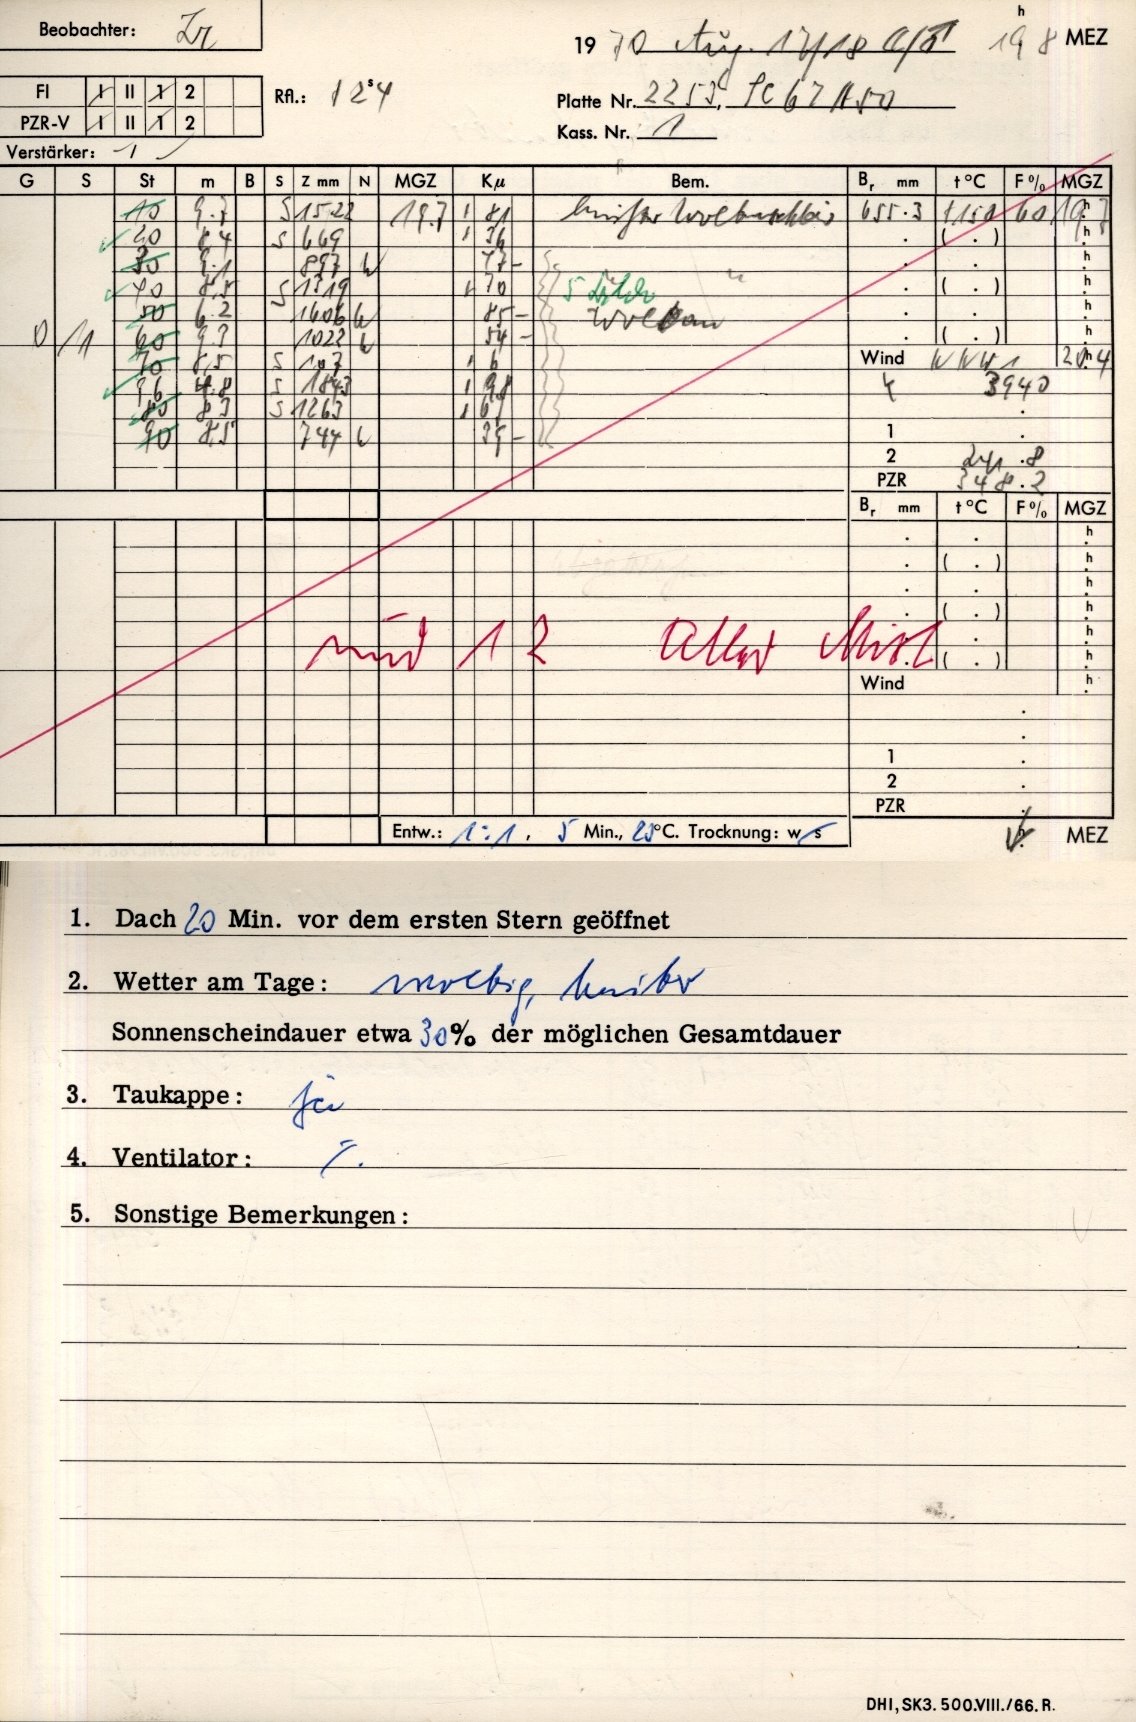 Beobachter: Zr
19 70 Aug. 17/18 19 h 8 MEZ
FI I II 1 2
PZR-V I II 1 2
Rfl.: 12 s 4
Platte Nr. 2253,
Kass. Nr. 1
Verstärker: 1
G S St m B S Z mm N MGZ Kμ Bem. Br mm t °C F % MGZ
10 9.7 S 1522 19.7 81 655.3 +150 60 19 h 7
20 6.4 S 669 36 . ( . ) h
30 9.1 897 W 77 – . . h
40 8.5 S 1319 70 5 . ( . ) h
50 6.2 1606 W 85 – . . h
0/1 60 9.3 1022 W 54 – . ( . ) h
70 8.5 S 107 6 Wind WNW 1 20.4 h
96 4.8 S 1843 98 3940
80 8.3 S 1263 67 .
90 8.5 744 W 39 – 1 .
2 241.8
PZR 348.2
Br mm t °C F % MGZ
. . h
. ( . ) h
. . h
. ( . ) h
. . h
nur 12 Alles Mist . ( . ) h
Wind h
.
.
1 .
2 .
PZR .
Entw.: 1:1, 5 Min., 20 °C. Trocknung: w s
MEZ
1. Dach 20 Min. vor dem ersten Stern geöffnet
2. Wetter am Tage: wolkig, heiter
Sonnenscheindauer etwa 30% der möglichen Gesamtdauer
3. Taukappe: ja
4. Ventilator: /.
5. Sonstige Bemerkungen:
DHI, SK3. 500.VIII./66. R.